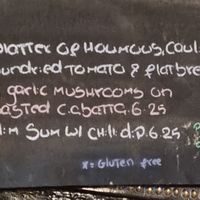 latter of Houmous, Coul
undried Tomato & flatbre
garlic Mushrooms on
asted Ciabatta 6.25
im Sum w/ chili dip 6.25
x = Gluten free